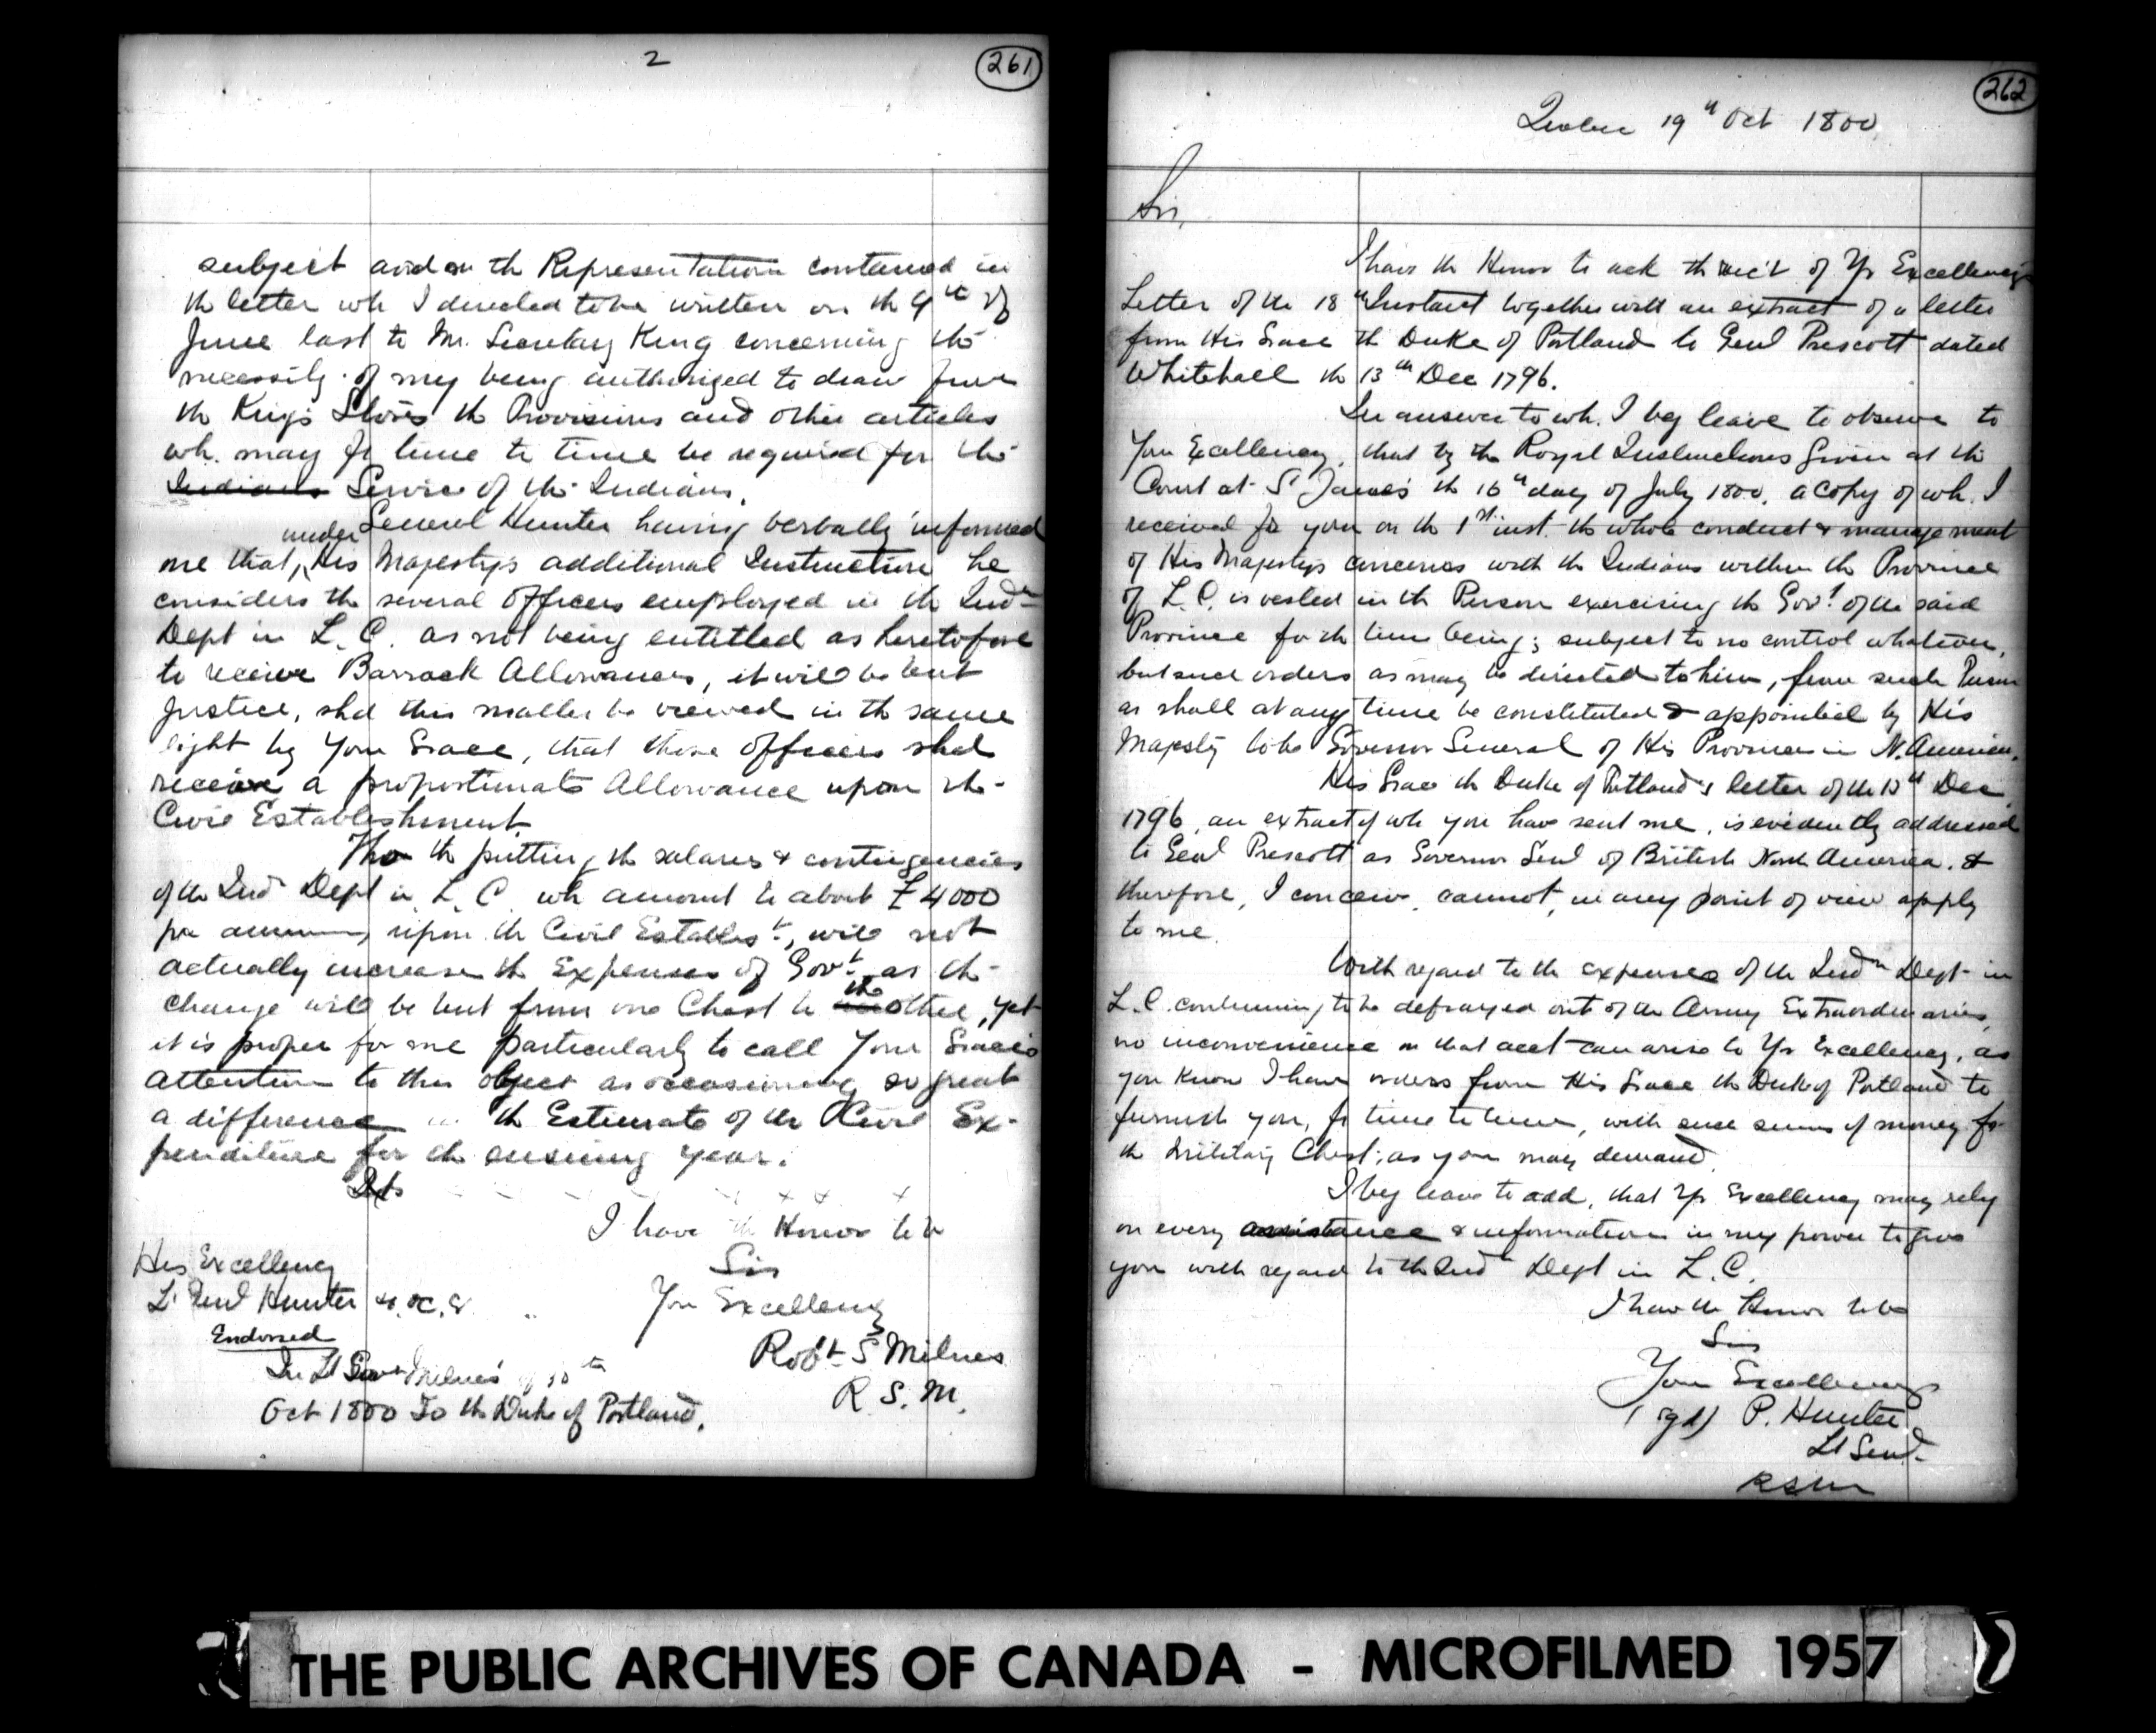 2
261
subject and on th Representation contained in
th letter wh I directed to be written on th 9th of
June last to Mr. Secretary King concerning th
necessity of my being authorized to draw from
th King's Stores th Provisions and other articles
wh. may fr time to time be required for th
Indians Service of th Indians.
General Hunter having verbally informed
under
me that, His Majesty's additional Instruction he
considers the several Officers employed in th Indn
Dept in L. C. as not being entitled as heretofore
to receive Barrack Allowances, it will be but
Justice, shd this matter be viewed in th same
light by Your Grace, that those Officers shd
receive a proportionate Allowance upon th
Civil Establishment.
Tho th putting th salaries & contingencies
of the Indn Dept in L. C. wh amount to about £4000
per annum, upon th Civil Establist, will not
actually increase th Expenses of Govt as th
the
change will be but from one Chest to other, yet
it is proper for me particularly to call Your Grace's
attention to this object as occasioning so great
a difference in th Estimate of the Civil Ex-
penditure for th ensuing year.
I have th Honor to be
Sir
Your Excellency
His Excellency
Lt Genl Hunter &c. &c. &
Endorsed
Robt S Milnes
R. S. M.
In Lt Govr Milnes' of 10th
Oct 1800 To th Duke of Portland.
262
Quebec 19th Oct 1800
Sir,
I have th Honor to ack th rec't of Yr Excellency's
Letter of the 18th Instant together with an extract of a letter
from His Grace th Duke of Portland to Genl Prescott dated
Whitehall th 13th Dec 1796.
In answer to wh. I beg leave to observe to
Your Excellency, that by the Royal Instructions given at th
Court at St James's th 16th day of July 1800, a copy of wh. I
received fr you on th 1st inst. th whole conduct & management
of His Majesty's concerns with th Indians within th Province
of L. C. is vested in th Person exercising th Govt of the said
Province for th time being; subject to no control whatever,
but such orders as may be directed to him, from such Person
as shall at any time be constituted & appointed by His
Majesty to be Governor General of His Provinces in N. America.
His Grace th Duke of Portland's letter of the 13th Dec
1796, an extract of wh you have sent me, is evidently addressed
to Genl Prescott as Governor Genl of British North America. &
therefore, I conceive, cannot, in any point of view apply
to me.
With regard to th expenses of the Indn Dept in
L. C. continuing to be defrayed out of the Army Extraordinaries,
no inconvenience on that acct can arise to Yr Excellency, as
you know I have orders from His Grace th Duke of Portland to
furnish you, fr time to time, with such sums of money fr
th Military Chest, as you may demand.
I beg leave to add, that Yr Excellency may rely
on every assistance & information in my power to give
you with regard to th Indn Dept in L. C.
I have th Honor to be
Sir
Your Excellency's
(sgd) P. Hunter
Lt Genl.
RSM
THE PUBLIC ARCHIVES OF CANADA - MICROFILMED 1957